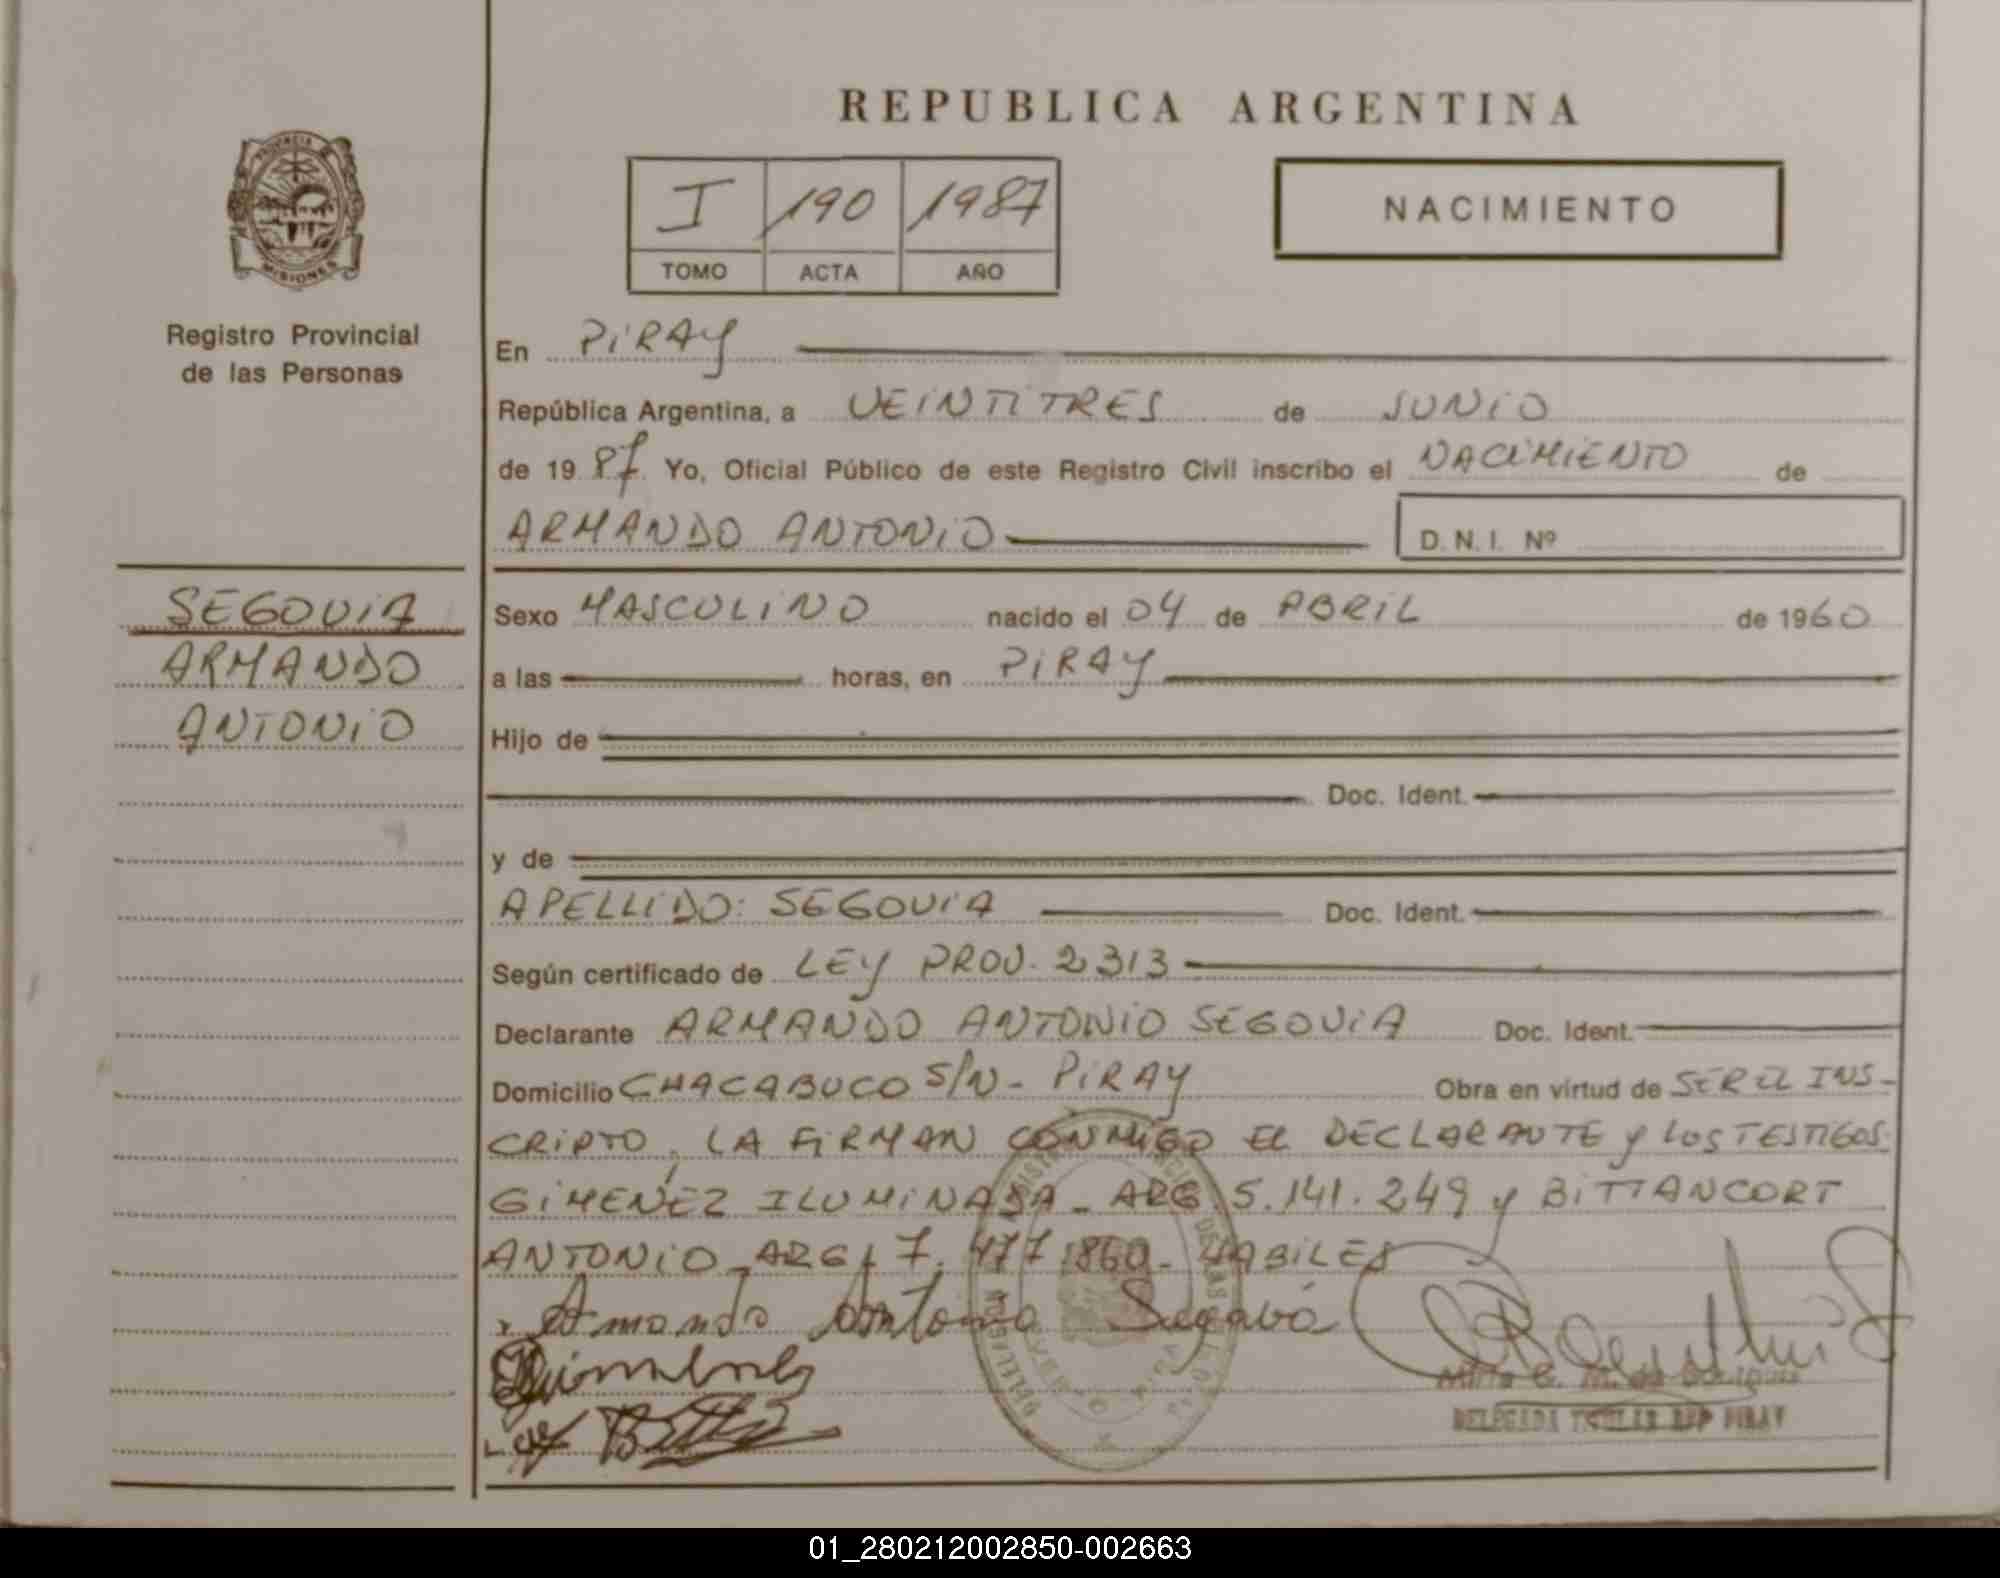 REPUBLICA ARGENTINA
PROVINCIA DE
MISIONES
Registro Provincial
de las Personas
I 190 1987
TOMO ACTA AÑO
NACIMIENTO
En PiRAY
República Argentina, a VEiNTiTRES de JUNiO
de 19 87 Yo, Oficial Público de este Registro Civil inscribo el NACiMiENTO de
ARMANDO ANTONiO
D. N. I. Nº
SEGOViA
ARMANDO
ANTONiO
Sexo MASCULiNO nacido el 04 de ABRiL de 1960
a las horas, en PiRAY
Hijo de
Doc. Ident.
y de
APELLiDO: SEGOViA Doc. Ident.
Según certificado de LEY PROV. 2313
Declarante ARMANDO ANTONiO SEGOViA Doc. Ident.
Domicilio CHACABUCO S/N - PiRAY Obra en virtud de SER EL INS-
CRiPTO, LA FiRMAN CONMiGO EL DECLARANTE y LOS TESTiGOS.
GiMENEZ ILUMiNADA - ARG. 5.141.249 y BiTTANCORT
ANTONiO - ARG. 7.477.860 - HABiLES
Armando Antonio Segovia
DELEGADA TITULAR RPP PIRAY
01_280212002850-002663